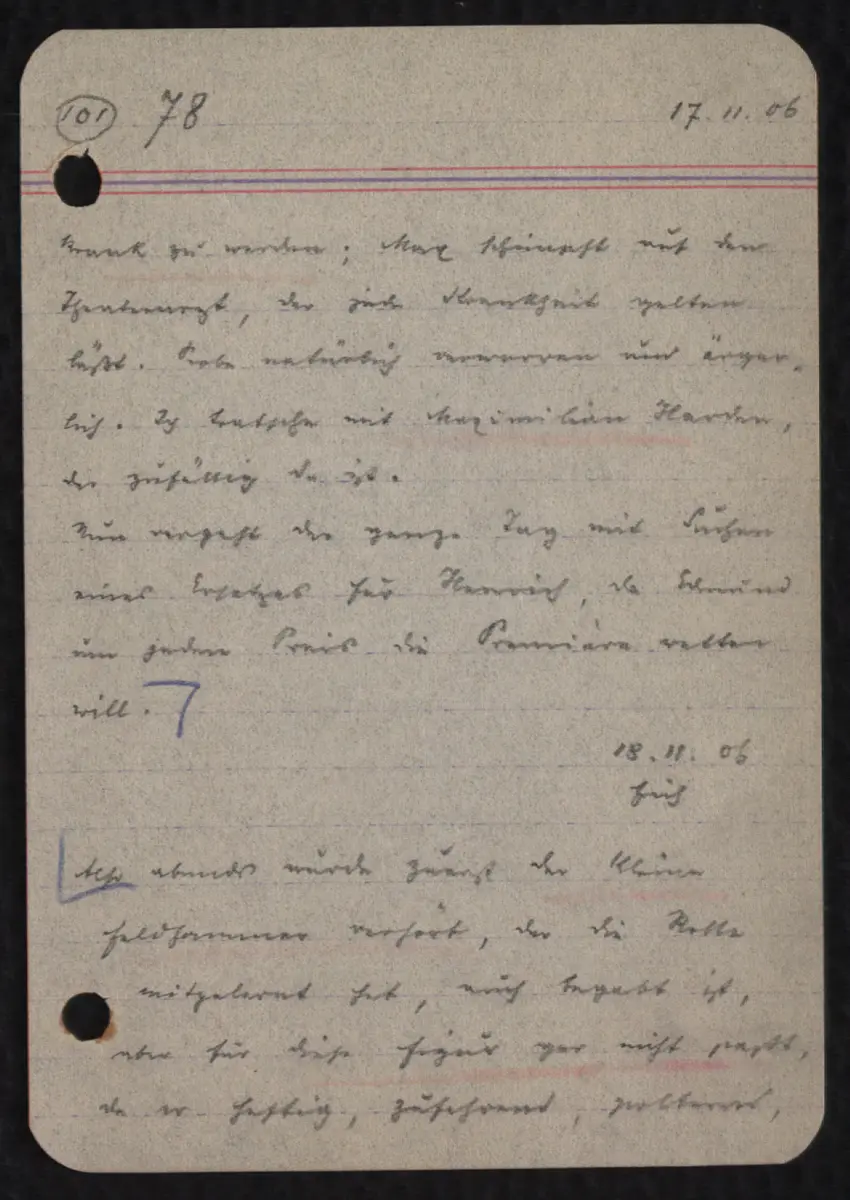 101 78 17.11.06
krank zu werden; Max schimpft auf den
Theaterarzt, der jede Krankheit gelten
läßt. Probe natürlich verworren und ärger-
lich. Ich tratsche mit Maximilian Harden,
der zufällig da ist.
Nun vergeht der ganze Tag mit Suchen
eines Ersatzes für Henrich, da Edmund
um jeden Preis die Première retten
will.
18.11.06
früh
Also abends wurde zuerst der kleine
Feldhammer verhört, der die Rolle
mitgelernt hat, auch begabt ist,
aber für diese Figur gar nicht paßt,
da er heftig, zufahrend, polternd,